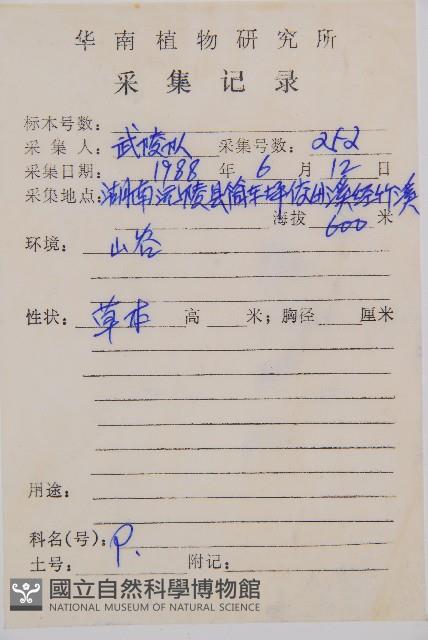 华南植物研究所
采集记录
标本号数：
采集人：武陵队 采集号数：252
采集日期：1988 年 6 月 12 日
采集地点：湖南沅陵县
海拔 600 米
环境：山谷
性状：草本 高 米；胸径 厘米
用途：
科名(号)：P.
土号： 附记：
國立自然科學博物館
NATIONAL MUSEUM OF NATURAL SCIENCE